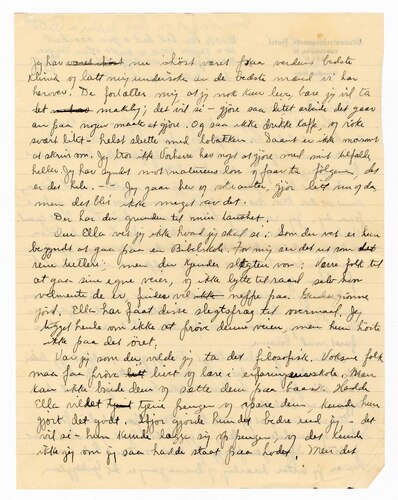 jeg har nu ihöst vært paa verdens bedste
klinik og latt mig undersöke av de bedste mænd vi har
herover. De fortæller mig at jeg nok kan leve, bare jeg vil ta
det makelig; det vil si - gjöre saa litet arbeide det gaar
an paa nogen maate at gjöre. Og saa ikke drikke kaffe, og röke
svært litet - helst slutte med tobakken. Saant er ikke morsomt
at skrive om. Jeg tror ikke Vorherre har noget at gjöre med mit befindende
heller. Jeg har syndet mot naturens lov og faar ta fölgene, det
er det hele. - Jeg gaar her og , gjör litt nu og da
men det blir ikke meget av det.
Der har du grunden til min taushet.
Om Ella vet jeg ikke hvad jeg skal si. Som du vet er hun
begyndt at gaa paa en Bibelskole. For mig er det ut som det
rene ; men du kjender slegten vor: Værre folk til
at gaa sine egne veier, og ikke lytte til raad selv hvor
velmente de er, findes vel neppe paa Guds grönne
jord. Ella har faat disse slegtsdrag til overmaal. Jeg
tigget hende om ikke at pröve denne veien, men hun hörte
ikke paa det öret.
Var jeg som du, vilde jeg ta det filosofisk. Voksne folk
maa faa pröve livet og lære i erfaringens skole. Man
kan ikke binde dem og sætte dem paa baas. Hadde
Ella villet tjene penger og spare dem, kunde hun
gjort det godt. Ifjor gjorde hun det bedre end jeg - det
vil si - hun kunde lægge sig op penger, og det kunde
ikke jeg om jeg saa hadde staat paa hodet. Men det